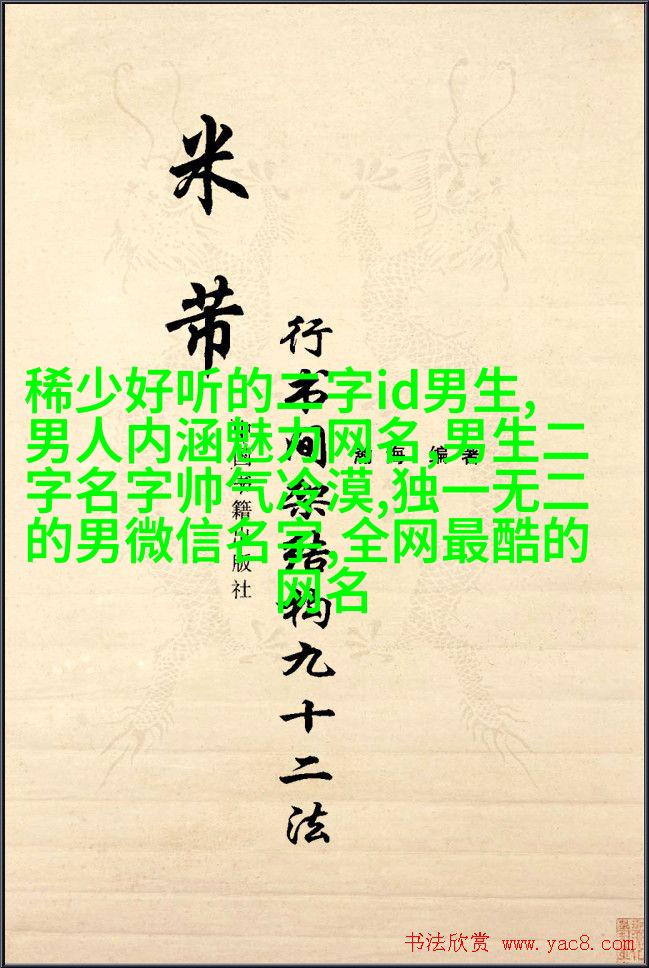 米芾
行书间架结构九十二法
海 编著
中国书籍出版社
稀少好听的二字id男生,
男人内涵魅力网名,男生二
字名字帅气冷漠,独一无二
的男微信名字,全网最酷的
网名
书法欣赏 www.yac8.com